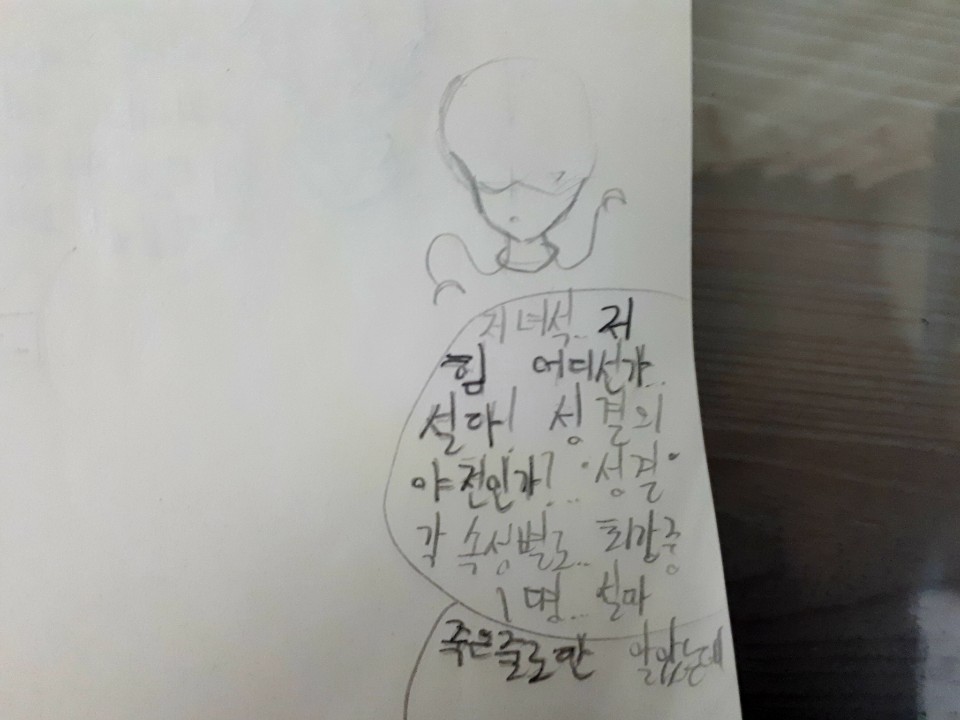 저 녀석.. 저
힘 어디선가..
설마! 성결의
야천인가!... "성결"
각 속성별로... 최강중
1명... 설마
죽은줄로만 알았는데